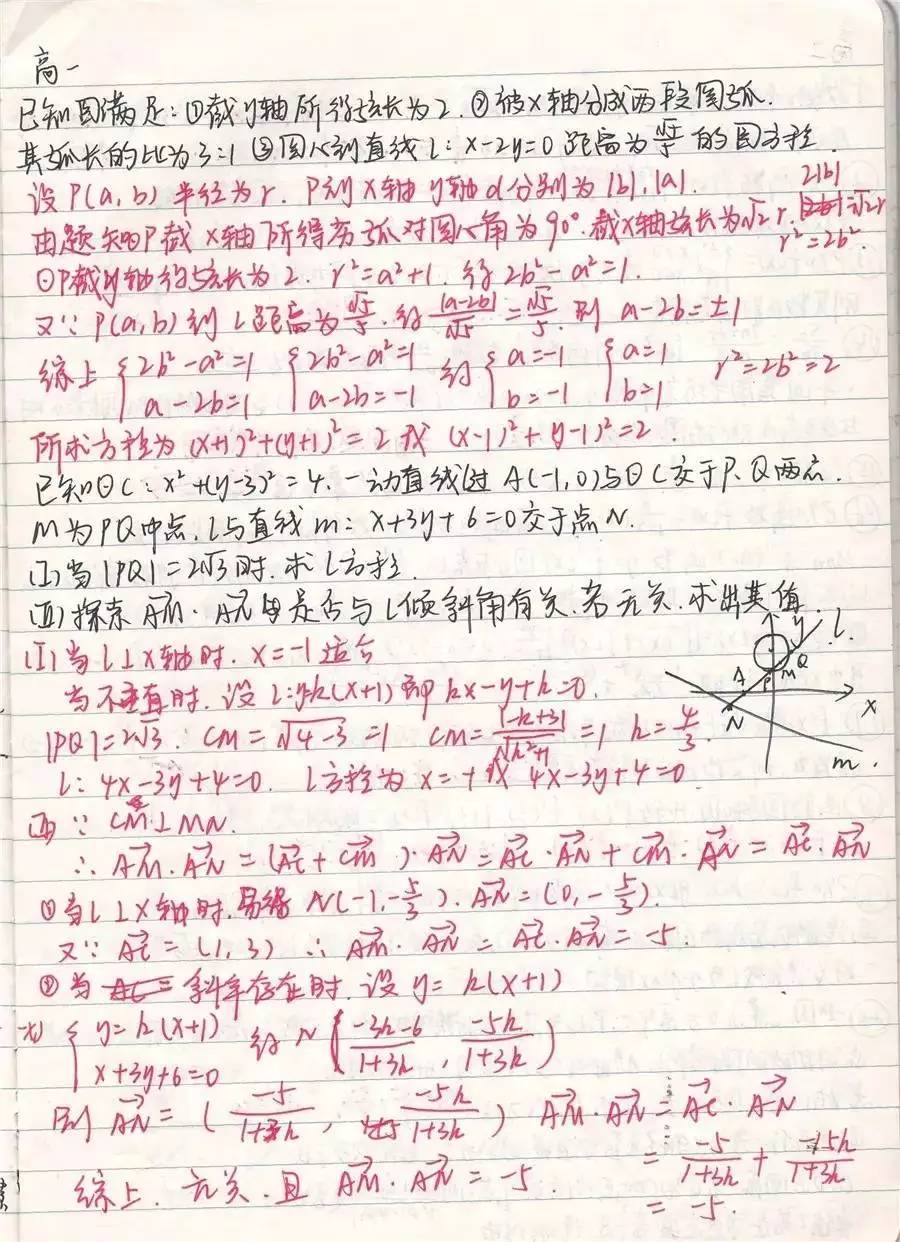 高一
已知圆满足:①截y轴所得弦长为2.②被x轴分成两段圆弧.
其弧长的比为3:1 ③圆心到直线l:x-2y=0距离为√5/5的圆方程.
设P(a,b) 半径为r. P到x轴y轴d分别为|b|,|a|.
由题知⊙P截x轴所得劣弧对圆心角为90°.截x轴弦长为√2r. 2|b|=√2r
r²=2b²
⊙P截y轴得弦长为2. r²=a²+1. 得2b²-a²=1.
又∵P(a,b)到l距离为√5/5.得|a-2b|/√5=√5/5.则 a-2b=±1
综上 {2b²-a²=1 a-2b=1 {2b²-a²=1 a-2b=-1 得 {a=-1 b=-1 {a=1 b=1 r²=2b²=2
所求方程为(x+1)²+(y+1)²=2或(x-1)²+(y-1)²=2.
已知⊙C:x²+(y-3)²=4.一动直线l过A(-1,0)与⊙C交于P.Q两点.
M为PQ中点.l与直线m:x+3y+6=0交于点N.
(Ⅰ)当|PQ|=2√3时.求l方程.
(Ⅱ)探索AM→·AN→是否与l倾斜角有关.若无关.求出其值.
(Ⅰ)当l⊥x轴时.x=-1适合
当不垂直时.设l:y=k(x+1)即kx-y+k=0.
|PQ|=2√3∴CM=√(4-3)=1 CM=|-k+3|/√(k²+1)=1 k=4/3.
l:4x-3y+4=0. l方程为x=-1或4x-3y+4=0
y l. A P M Q N x m.
(Ⅱ)∵CM⊥MN.
∴AM→·AN→=(AC→+CM→)·AN→=AC→·AN→+CM→·AN→=AC→·AN→
①当l⊥x轴时.易得N(-1,-5/3).AN→=(0,-5/3).
又∵AC→=(1,3) ∴AM→·AN→=AC→·AN→=-5.
②当斜率存在时.设y=k(x+1)
{y=k(x+1) x+3y+6=0 得N((-3k-6)/(1+3k),(-5k)/(1+3k))
则AN→=(-5/(1+3k),-5k/(1+3k)) AM→·AN→=AC→·AN→
=-5/(1+3k)+-15k/(1+3k)
综上.无关.且AM→·AN→=-5.
=-5.